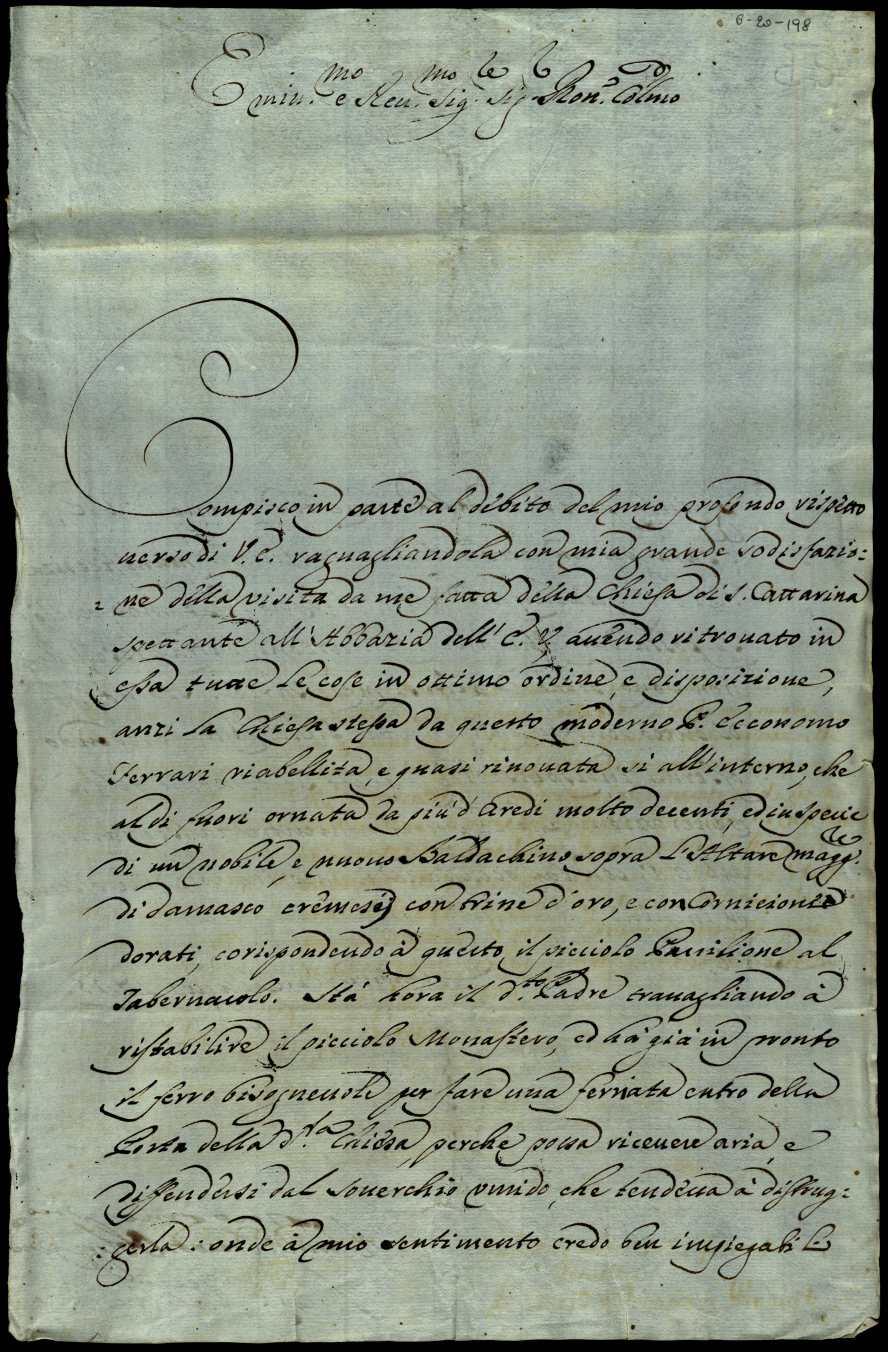 6-20-198
Emin.mo e Reu.mo Sig.re Sig.r Pron.e Colmo
Compisco in parte al debito del mio profondo rispetto
uerso di V. E. raguagliandola con mia grande sodisfazio:
:ne della visita da me fatta della Chiesa di S. Cattarina
spettante all'Abbazia dell'E. V. auendo ritrouato in
essa tutte le cose in ottimo ordine, e disposizione,
anzi la Chiesa stessa da questo moderno P. Economo
Ferrari riabellita, e quasi rinouata si all'interno, che
al di fuori ornata da più d'Aredi molto decenti, ed in specie
di un nobile, e nuouo Baldachino sopra l'Altare magg.re
di damasco cremesij con trine d'oro, e con Cornicione
dorati, corispondendo à questo, il picciolo Pauilione al
Tabernacolo. Stà hora il d.to Padre trauagliando à
ristabilire il picciolo Monastero, ed hà già in pronto
il ferro bisogneuole per fare una ferriata entro della
Porta della d.ta Chiesa, perche possa riceuere aria, e
diffendersi dal souerchio umido, che tendeua à distrug:
:gerla: onde à mio sentimento credo ben impiegati L